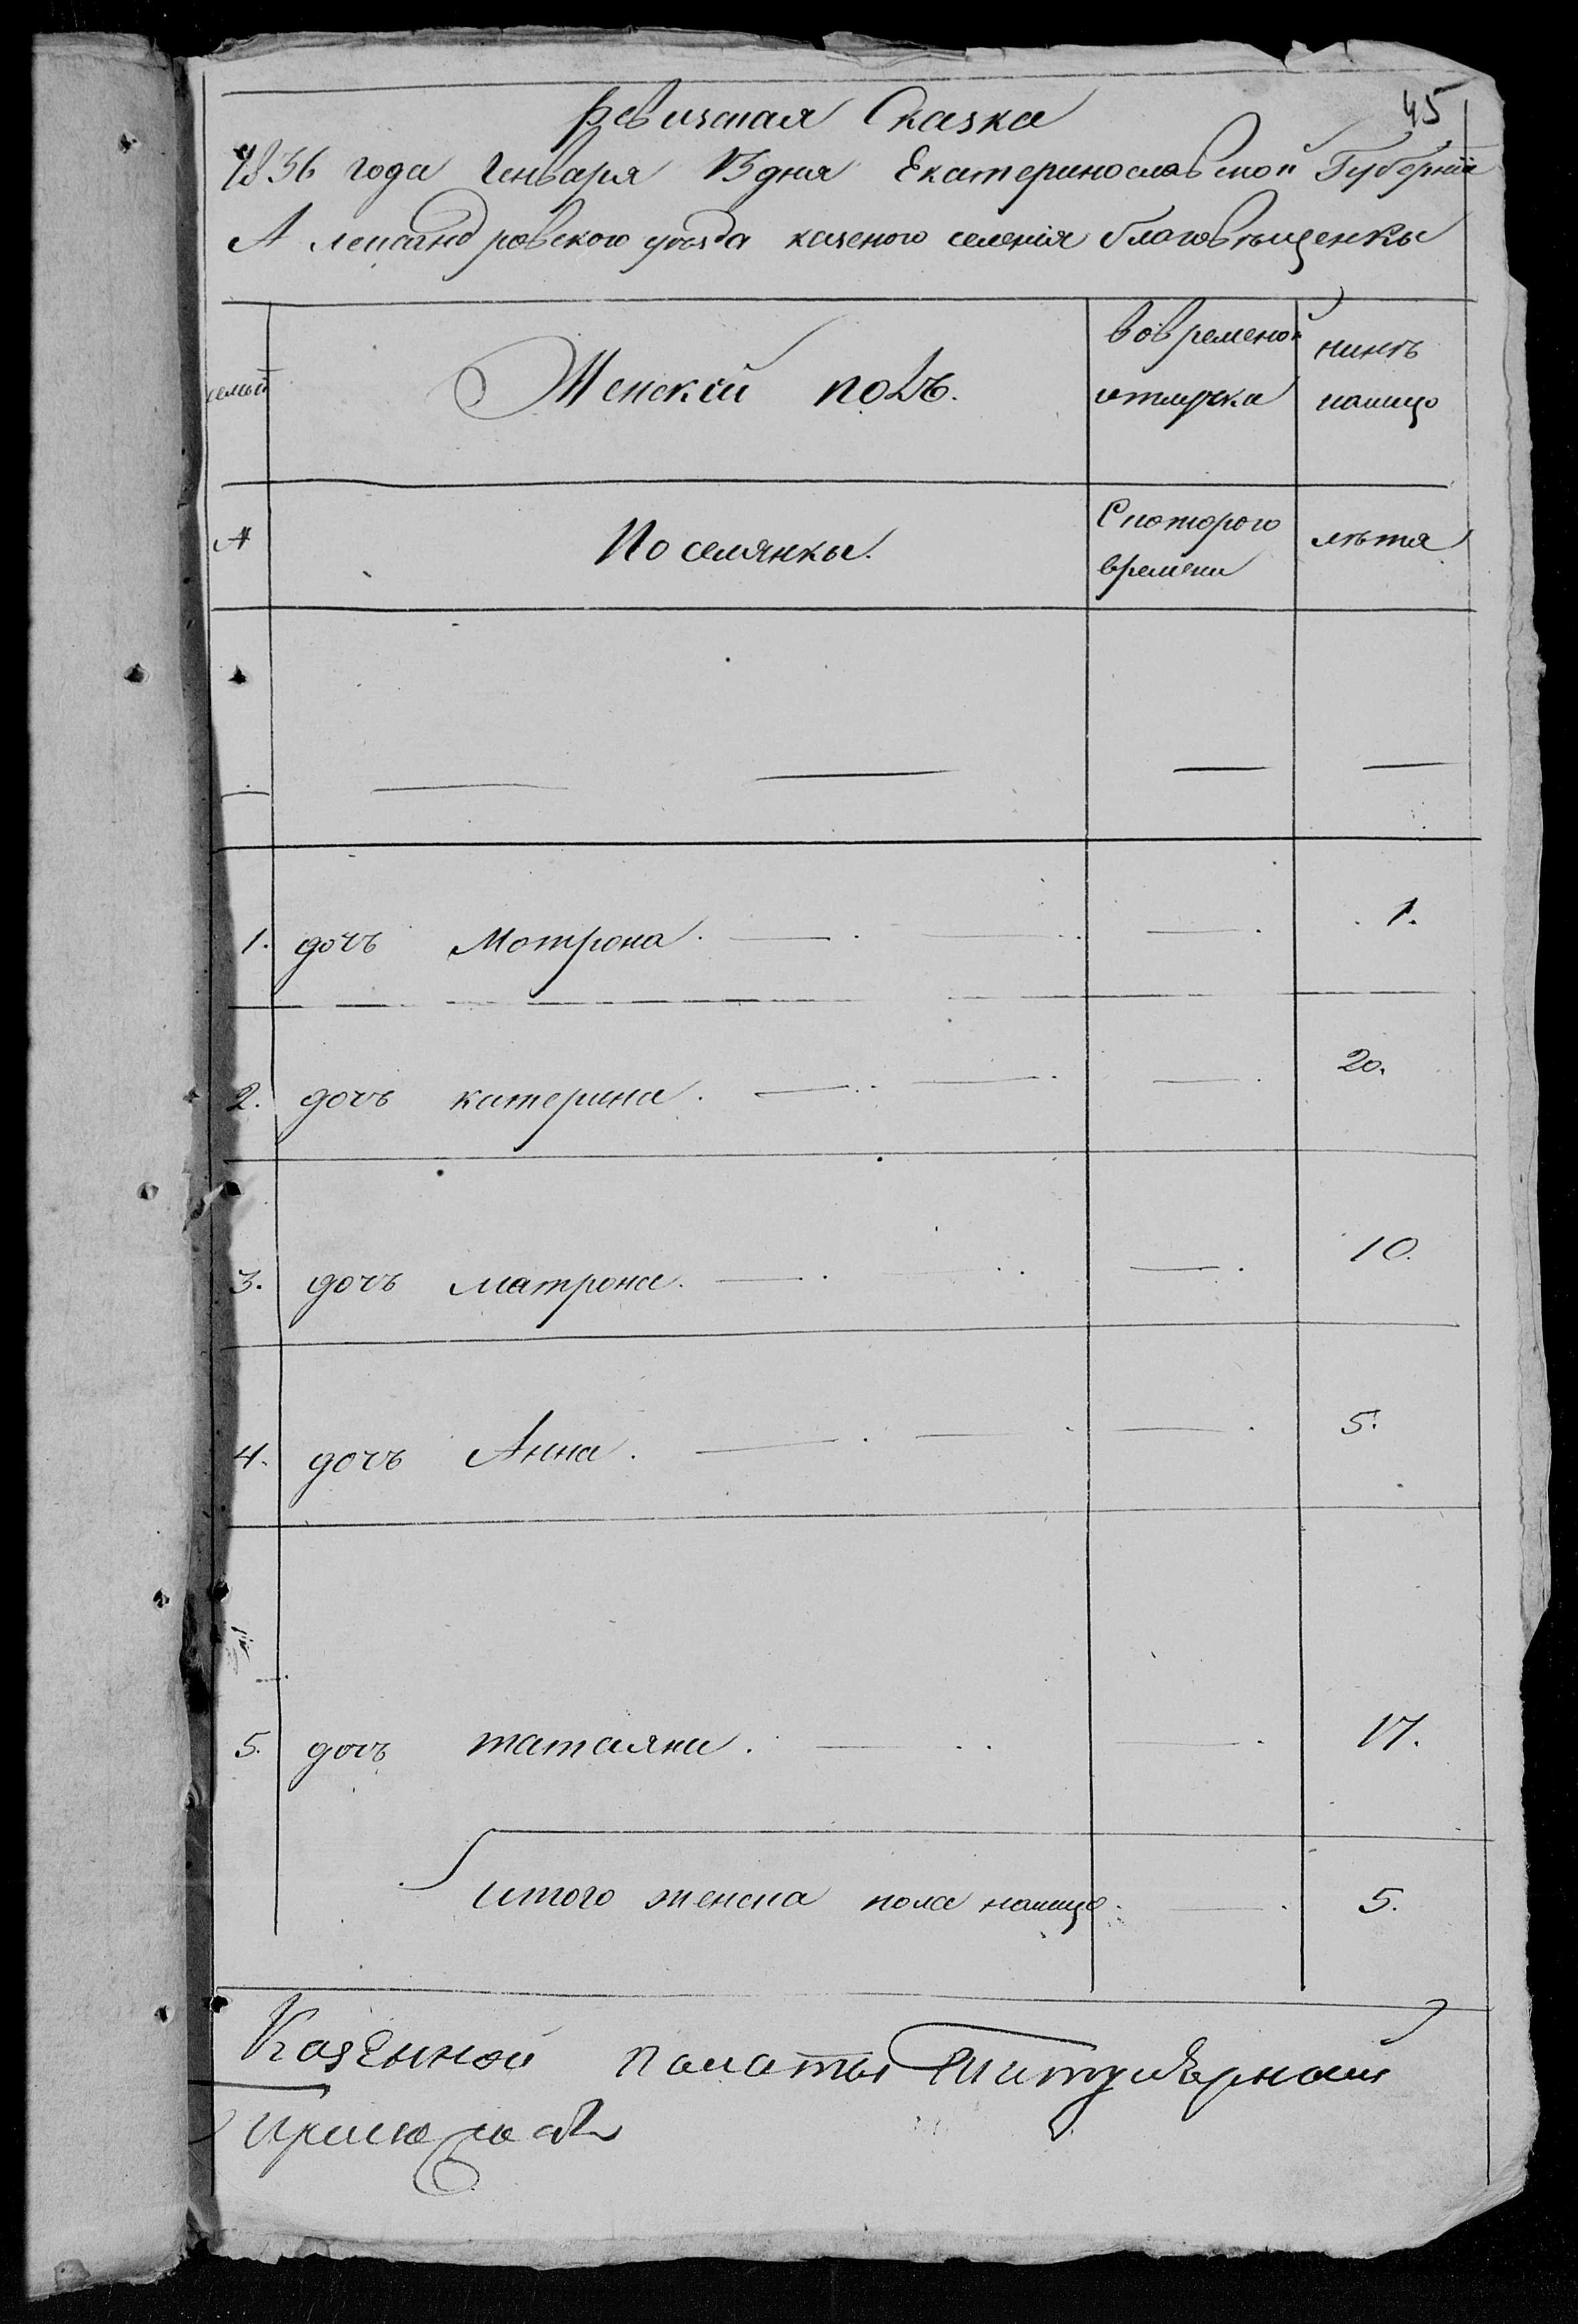 45
Ревизская Сказка
1836 года Генваря 13 дня Екатеринославской Губернiи
Александровского уѣзда казеного селенiя благовѣщенки
семьи
Женскiй полъ.
вовременой
отлучка
нинѣ
налицо
№
Поселянки.
Скоторого
времени
лѣта
1. дочъ Мотрона. 1.
2. дочъ катерина. 20.
3. дочъ матрона. 10.
4. дочъ Анна. 5.
5. дочъ татаяна. 17.
итого женска пола налицо. 5.
Казенной палаты Титулярный